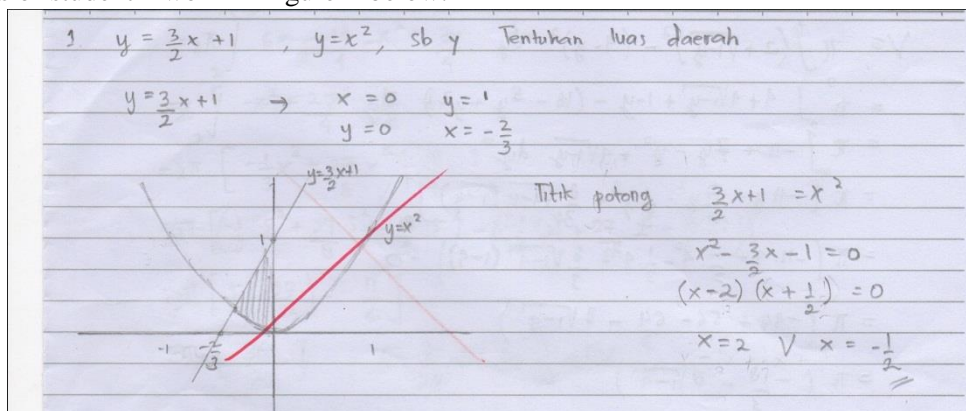 1. y = 3/2 x + 1 , y = x², sb y Tentukan luas daerah
y = 3/2 x + 1 → x = 0 y = 1
y = 0 x = -2/3
y = 3/2 x + 1
Titik potong 3/2 x + 1 = x²
1
y = x²
x² - 3/2 x - 1 = 0
(x - 2) (x + 1/2) = 0
-1 -2/3 1
x = 2 V x = -1/2